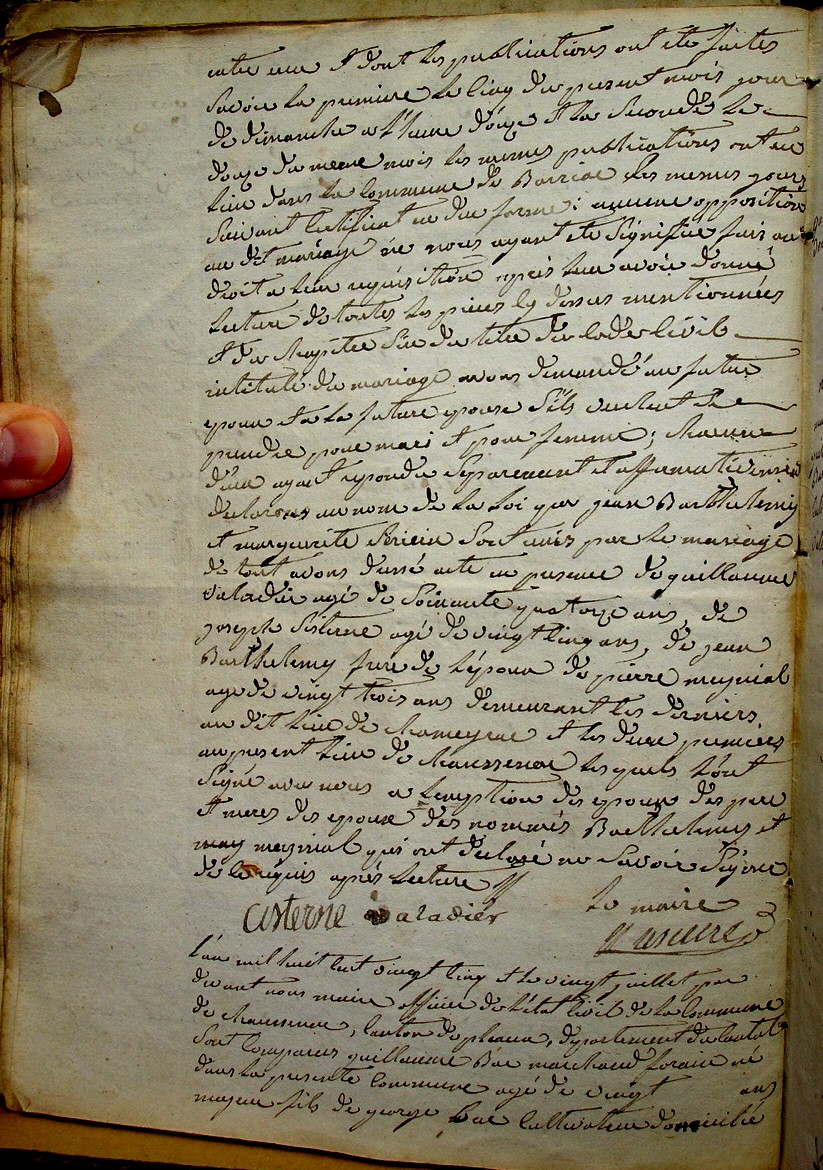 entre eux et dont les publications ont été faites
savoir la premiere le cinq du present mois jour
de dimanche a l'heure d'onze et la seconde le
douze du meme mois les memes publications ont eu
lieu dans la commune de Barriac les memes jours
suivant certificat en due forme; aucune opposition
au dit mariage ne nous ayant été signifiée fais ant
droit a leur requisition après leur avoir donné
lecture de toutes les pieces cy dessus mentionnées
et du chapitre six du titre du code civil
intitulé du mariage avons demandé au futur
epoux et a la future epouse s'ils veulent se
prendre pour mari et pour femme; chacun
d'eux ayant repondu separement et affirmativement
declarons au nom de la loi que jean Barthelemy
et marguerite sont unis par le mariage
de tout avons dressé acte en presence de guillaume
valadier agé de soixante quatorze ans, de
joseph sisterne agé de vingt cinq ans, de jean
Barthelemy frere de l'époux de pierre magnial
agé de vingt trois ans demeurant les derniers
au dit lieu de et les deux premiers
au present lieu de chaussenac lesquels l'ont
signé avec nous a l'exception des epoux des pere
et meres des epoux des nommés Barthelemy et
magnial qui ont declaré ne savoir signer
de ce requis après lecture
cisterne valadier le maire

l'an mil huit cent vingt cinq et le vingt juillet par
devant nous maire officier de l'état civil de la commune
de chaussenac, canton de pleaux, departement du cantal
sont comparus guillaume Bac marchand forain né
dans la presente commune agé de vingt ans
majeur fils de george Bac cultivateur domicilié